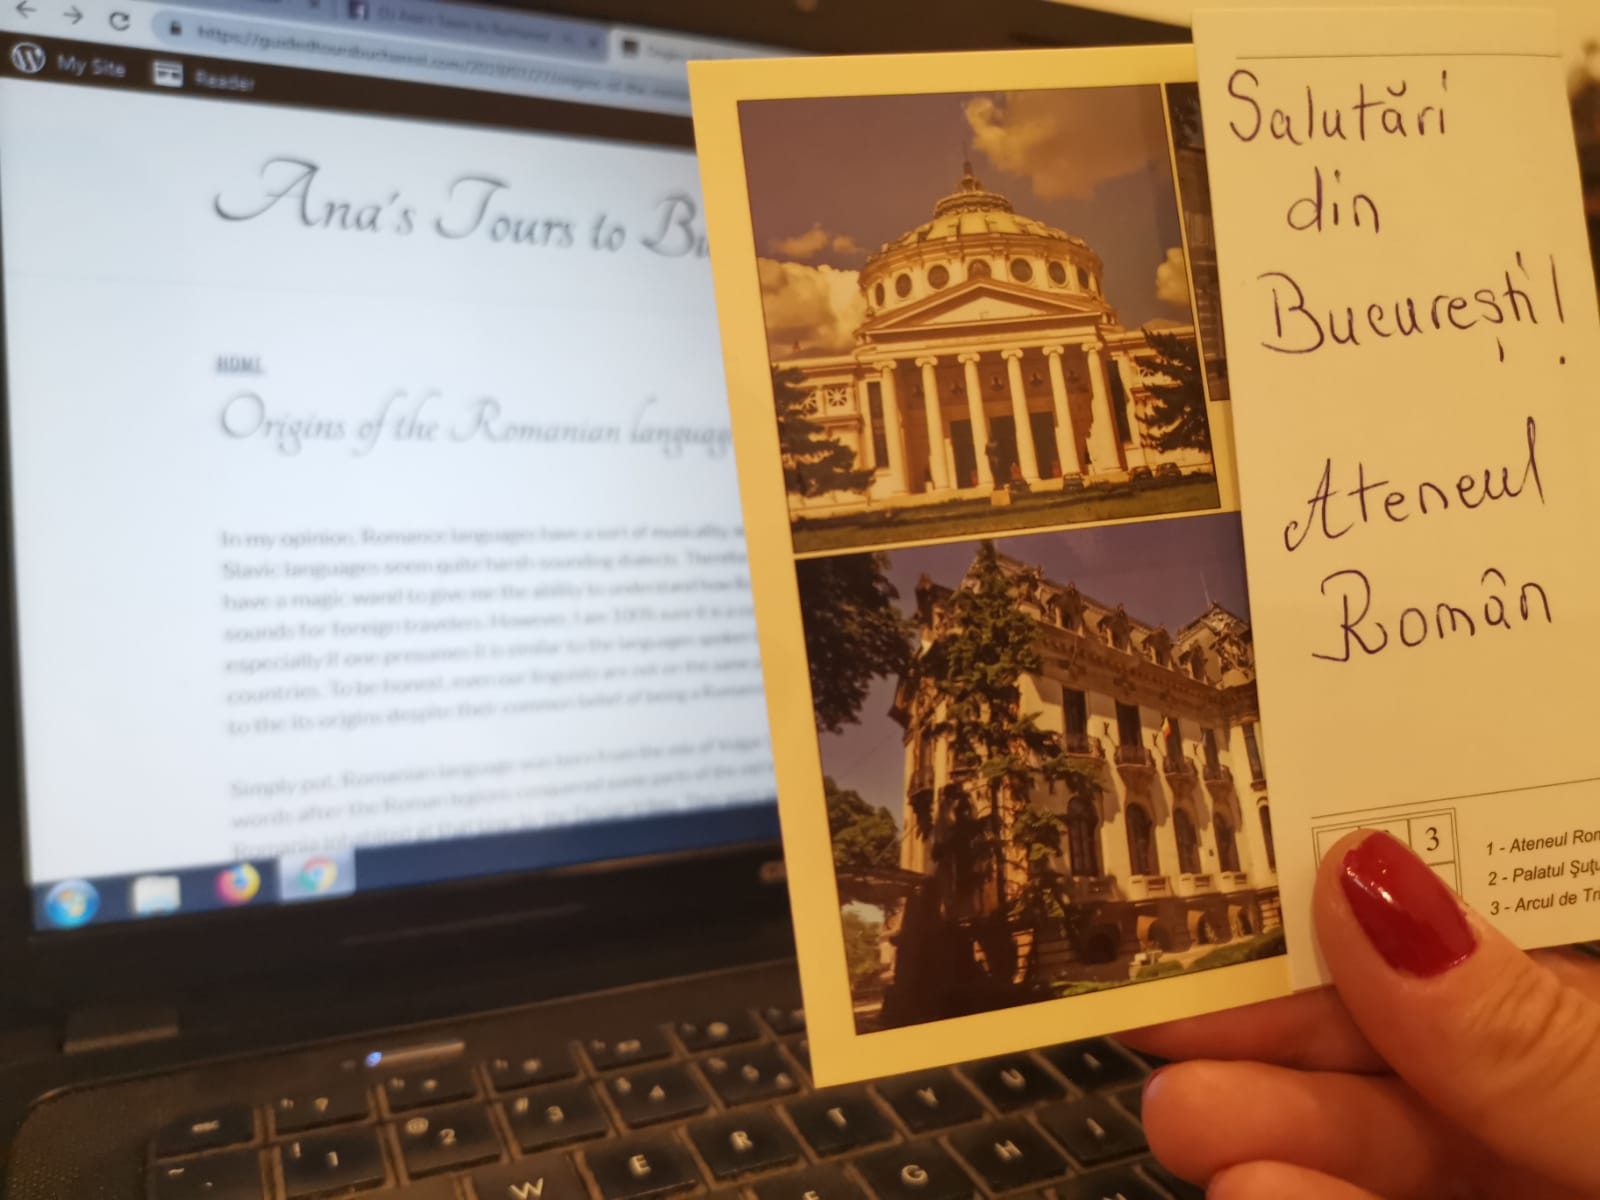 https://guidedtoursbucharest.com/2019/03/27/origins-of-the
My Site
Reader
Ana's Tours to Bu
HOME
Origins of the Romanian languag
In my opinion, Romance languages have a sort of musicality,
Slavic languages seem quite harsh sounding dialects.
have a magic wand to give me the ability to understand how
sounds for foreign travelers. However, I am 100% sure it is a
especially if one presumes it is similar to the languages spoken
countries. To be honest, even our linguists are not on the same
to the its origins despite their common belief of being a Roman
Simply put, Romanian language was born from the mix of Vulgar
words after the Roman legions conquered some parts of the
Romania inhabited at that time by the Dacian
Salutări
din
București!
Ateneul
Român
3
1 - Ateneul Rom
2 - Palatul Şuţu
3 - Arcul de Tri
esc
1
2
3
4
5
W
E
R
T
Y
U
I
G
H
J